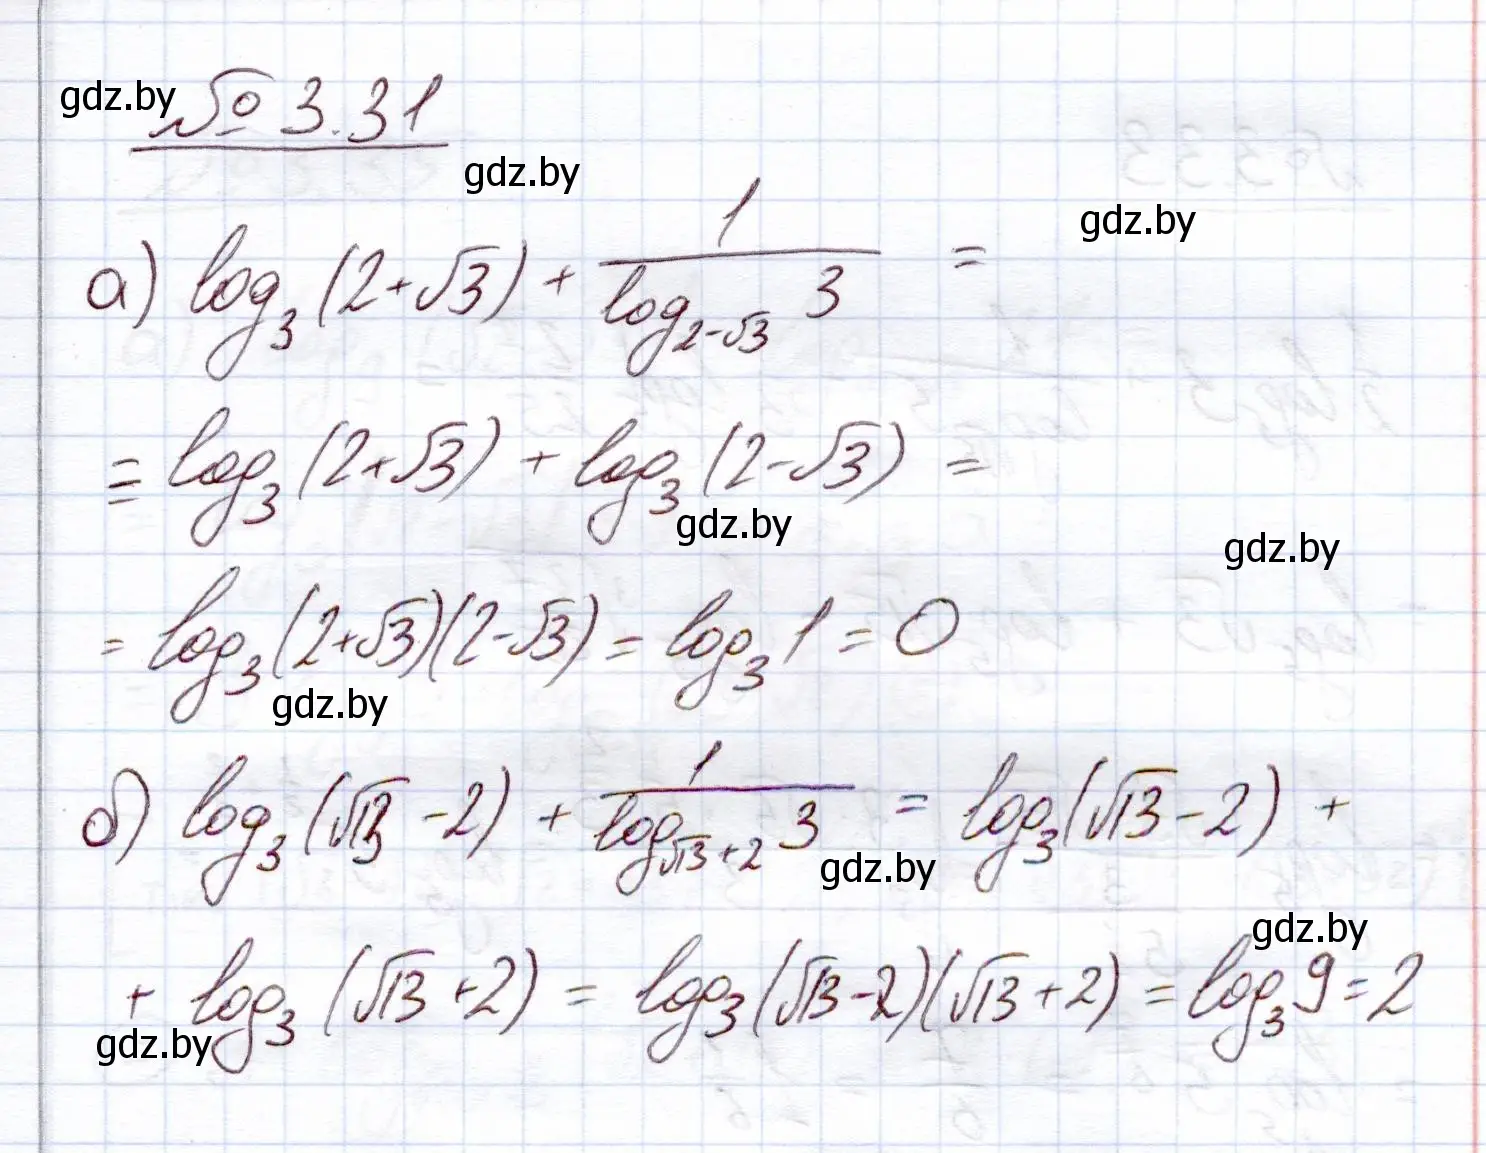 gdz.by
№ 3.31
gdz.by
gdz.by
а) log₃(2+√3) + 1/(log_{2-√3} 3) =
= log₃(2+√3) + log₃(2-√3) =
gdz.by
gdz.by
= log₃(2+√3)(2-√3) = log₃1 = 0
gdz.by
б) log₃(√13 -2) + 1/(log_{√13+2} 3) = log₃(√13-2) +
gdz.by
gdz.by
+ log₃(√13+2) = log₃(√13-2)(√13+2) = log₃9 = 2
gdz.by